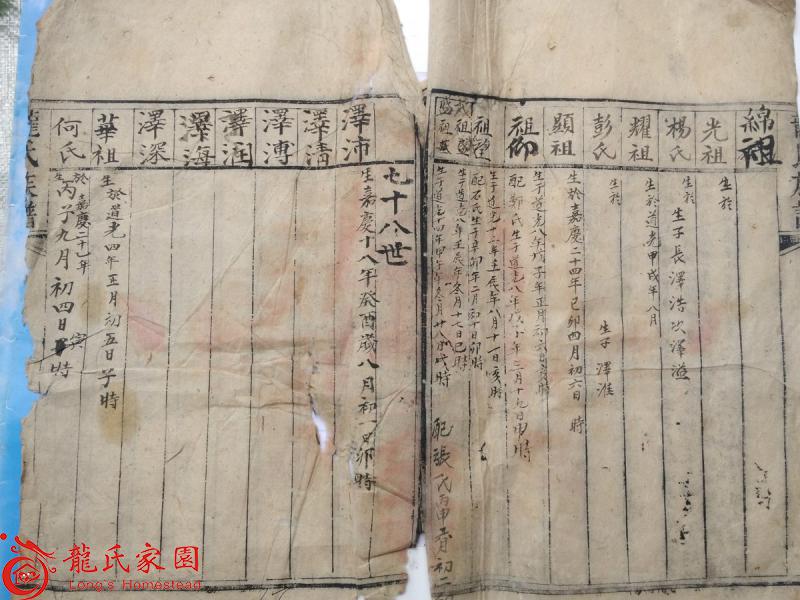 綿祖
光祖 生於
楊氏 生於 生子長澤浩次澤溢
耀祖 生於道光甲戌年八月
彭氏 生於 生子 澤淮
顯祖 生於嘉慶二十四年己卯四月初六日 時
祖 生于道光八年戊子年正月初六日 時
配鄭氏生于道光八年戊子年三月十九日申時
祖 生于道光十二年壬辰年八月十一日亥時
配石氏生于辛卯年二月初十日卯時
生于道光八年壬辰年冬月十七日巳時
生于道光十四年甲午年冬月廿八日 時 配張氏丙申 月初二
七十八世
澤沛 生嘉慶十八年癸酉歲八月初一日卯時
澤清
澤溥
澤涵
澤海
澤深
華祖 生於道光四年正月初五日子時
何氏 生於嘉慶二十一年丙子九月初四日寅時
龍氏族譜
龍氏家園
Long's Homestead